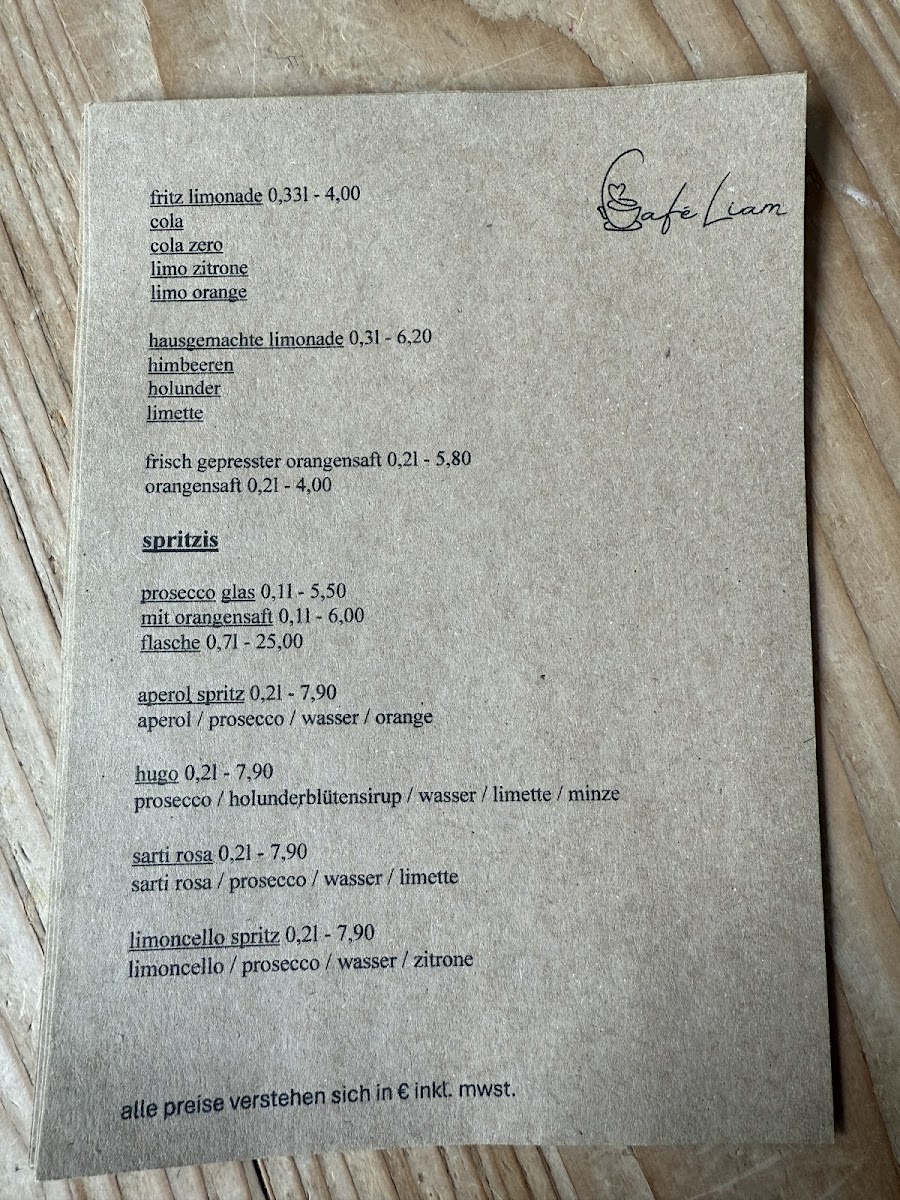 Café Liam
fritz limonade 0,33l - 4,00
cola
cola zero
limo zitrone
limo orange
hausgemachte limonade 0,3l - 6,20
himbeeren
holunder
limette
frisch gepresster orangensaft 0,2l - 5,80
orangensaft 0,2l - 4,00
spritzis
prosecco glas 0,1l - 5,50
mit orangensaft 0,1l - 6,00
flasche 0,7l - 25,00
aperol spritz 0,2l - 7,90
aperol / prosecco / wasser / orange
hugo 0,2l - 7,90
prosecco / holunderblütensirup / wasser / limette / minze
sarti rosa 0,2l - 7,90
sarti rosa / prosecco / wasser / limette
limoncello spritz 0,2l - 7,90
limoncello / prosecco / wasser / zitrone
alle preise verstehen sich in € inkl. mwst.